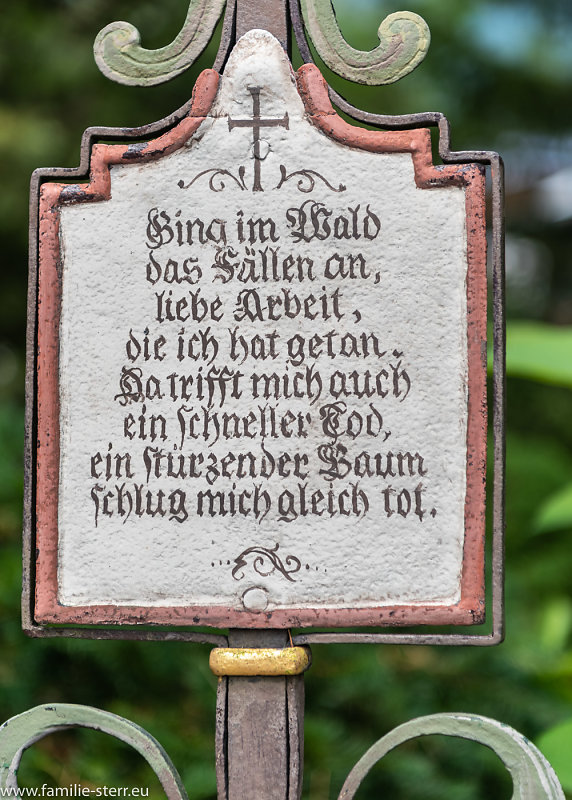 Ging im Wald
das Fällen an,
liebe Arbeit,
die ich hat getan.
Da trifft mich auch
ein schneller Tod,
ein stürzender Baum
schlug mich gleich tot.
www.familie-sterr.eu